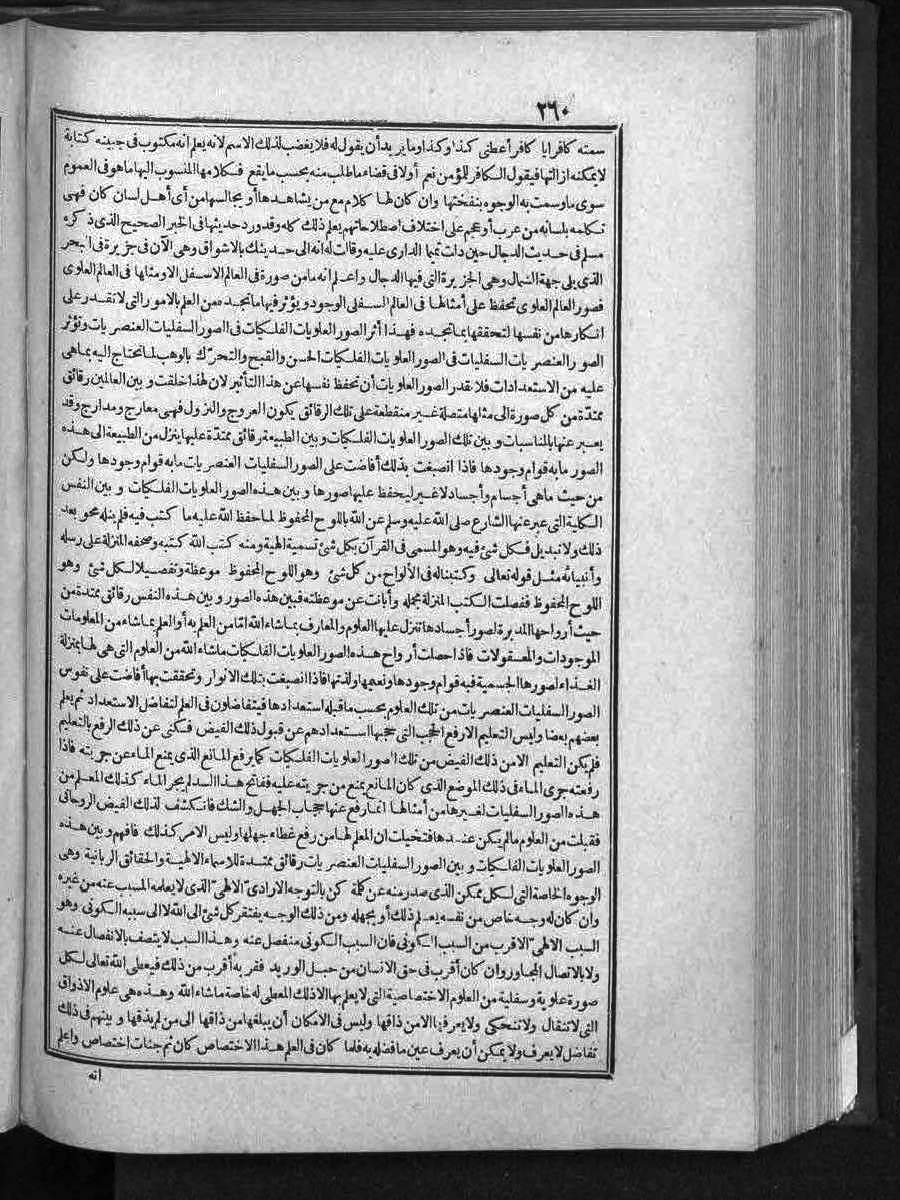 ٢٦٠
سمته كافرا يا كافر أعطنى كذا وكذا وما يريد أن يقول له فلا يغضب لذلك الاسم لانه يعلم انه مكتوب فى جبينه كتابة
لا يمكنه ازالتها فيقول الكافر للمؤمن نعم أولا فى قضاء ماطلب منه بحسب ما يقع فكلامها المنسوب اليها ماهو فى العموم
سوى ما وسمت به الوجوه بنفختها وان كان لها كلام مع من يشاهدها أو يجالسها من أى أهل لسان كان فهى
تكلمه بلسانه من عرب أو عجم على اختلاف اصطلاحاتهم يعلم ذلك كله وقد ورد حديثها فى الخبر الصحيح الذى ذكره
مسلم فى حديث الدجال حين دلت تميما الدارى عليه وقالت له انه الى حديثك بالاشواق وهى الآن فى جزيرة فى البحر
الذى يلى جهة الشمال وهى الجزيرة التى فيها الدجال واعلم انه مامن صورة فى العالم الاسفل الا ومثلها فى العالم العلوى
فصور العالم العلوى تحفظ على أمثالها فى العالم السفلى الوجود ويؤثر فيها ما تجده من العلم بالامور التى لا تقدر على
انكارها من نفسها لتحققها بما تجده فهذا أثر الصور العلويات الفلكيات فى الصور السفليات العنصريات وتؤثر
الصور العنصريات السفليات فى الصور العلويات الفلكيات الحسن والقبح والتحرّك بالوهب لما تحتاج اليه بماهى
عليه من الاستعدادات فلا تقدر الصور العلويات أن تحفظ نفسها عن هذا التأثير لان لهذا خلقت وبين العالمين رقائق
ممتدة من كل صورة الى مثلها متصلة غير منقطعة على تلك الرقائق يكون العروج والنزول فهى معارج ومدارج وقد
يعبر عنها بالمناسبات وبين تلك الصور العلويات الفلكيات وبين الطبيعة رقائق ممتدّة عليها ينزل من الطبيعة الى هذه
الصور ما به قوام وجودها فاذا انصبغت بذلك أفاضت على الصور السفليات العنصريات ما به قوام وجودها ولكن
من حيث ماهى أجسام وأجساد لا غير ليحفظ عليها صورها وبين هذه الصور العلويات الفلكيات وبين النفس
الكلية التى عبر عنها الشارع صلى الله عليه وسلم عن الله باللوح المحفوظ لما حفظ الله عليه ما كتب فيه فلم ينله محو بعد
ذلك ولا تبديل فكل شئ فيه وهو المسمى فى القرآن بكل شئ تسمية الهية ومنه كتب الله كتبه وصحفه المنزلة على رسله
وأنبيائه مثل قوله تعالى وكتبنا له فى الألواح من كل شئ وهو اللوح المحفوظ موعظة وتفصيلا لكل شئ وهو
اللوح المحفوظ ففصلت الكتب المنزلة مجمله وأبانت عن موعظته فبين هذه الصور وبين هذه النفس رقائق ممتدة من
حيث أرواحها المدبرة لصور أجسادها تنزل عليها العلوم والمعارف بماشاء الله امّا من العلم به أو العلم بما شاء من المعلومات
الموجودات والمعقولات فاذا حصلت أرواح هذه الصور العلويات الفلكيات ماشاء الله من العلوم التى هى لها بمنزلة
الغذاء لصورها الجسمية فبه قوام وجودها ونعيمها ولذتها فاذا انصبغت بتلك الانوار وتحققت بها أفاضت على نفوس
الصور السفليات العنصريات من تلك العلوم بحسب ماقبله استعدادها فيتفاضلون فى العلم لتفاضل الاستعداد ثم يعلم
بعضهم بعضا وليس التعليم الا رفع الحجب التى حجبها استعدادهم عن قبول ذلك الفيض فكنى عن ذلك الرفع بالتعليم
فلم يكن التعليم الا من ذلك الفيض من تلك الصور العلويات الفلكيات كما يرفع المانع الذى يمنع الماء عن جريته فاذا
رفعته جرى الماء فى ذلك الموضع الذى كان المانع يمنع من جريته عليه ففاتح هذا السد لم يجر الماء كذلك المعلم من
هذه الصور السفليات لغيرها من أمثالها انما رفع عنها حجاب الجهل والشك فانكشف لذلك الفيض الروحانى
فقبلت من العلوم مالم يكن عندها فتخيلت ان المعلم لها من رفع غطاء جهلها وليس الامر كذلك فافهم وبين هذه
الصور العلويات الفلكيات وبين الصور السفليات العنصريات رقائق ممتدة للاسماء الالهية والحقائق الربانية وهى
الوجوه الخاصة التى لكل ممكن الذى صدر منه عن كلمة كن بالتوجه الارادىّ الالهىّ الذى لا يعلمه المسبب عنه من غيره
وان كان له وجه خاص من نفسه يعلم ذلك أو يجهله ومن ذلك الوجه يفتقر كل شئ الى الله لا الى سببه الكونى وهو
السبب الالهىّ الاقرب من السبب الكونى فان السبب الكونى منفصل عنه وهذا السبب لا يتصف بالانفصال عنه
ولا بالاتصال المجاور وان كان أقرب فى حق الانسان من حبل الوريد فقربه أقرب من ذلك فيعطى الله تعالى لكل
صورة علوية وسفلية من العلوم الاختصاصية التى لا يعلم بها الا ذلك المعطى له خاصة ماشاء الله وهذه هى علوم الاذواق
التى لا تنقال ولا تنحكى ولا يعرفها الا من ذاقها وليس فى الامكان أن يبلغها من ذاقها الى من لم يذقها وبينهم فى ذلك
تفاضل لا يعرف ولا يمكن أن يعرف عين ما فضله به فلما كان فى العلم هذا الاختصاص كان ثم جنات اختصاص واعلم
انه